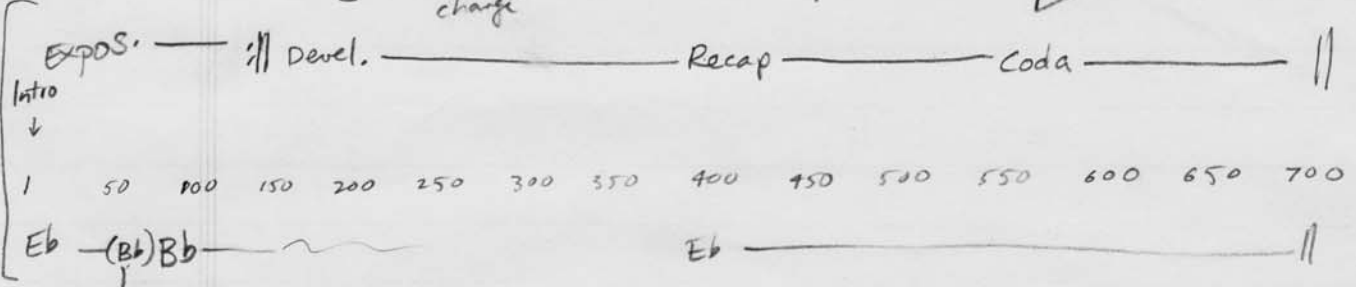 change
Expos. :|| Devel. Recap Coda ||
Intro
↓
1 50 100 150 200 250 300 350 400 450 500 550 600 650 700
Eb (Bb) Bb Eb ||